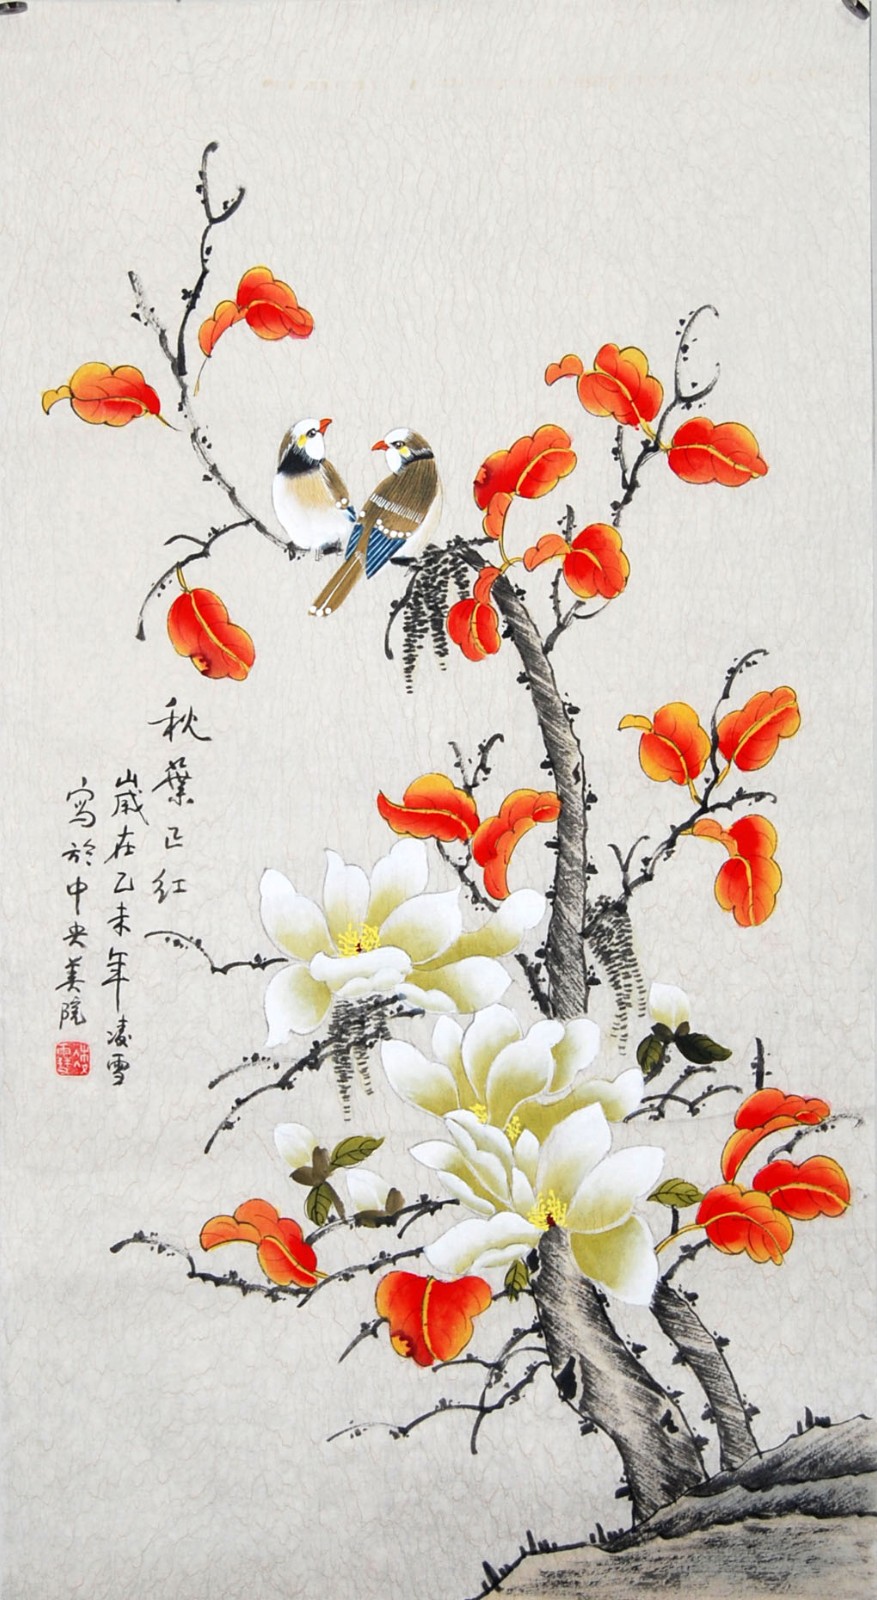 秋葉正红
岁在乙未年凌雪
寫於中央美院